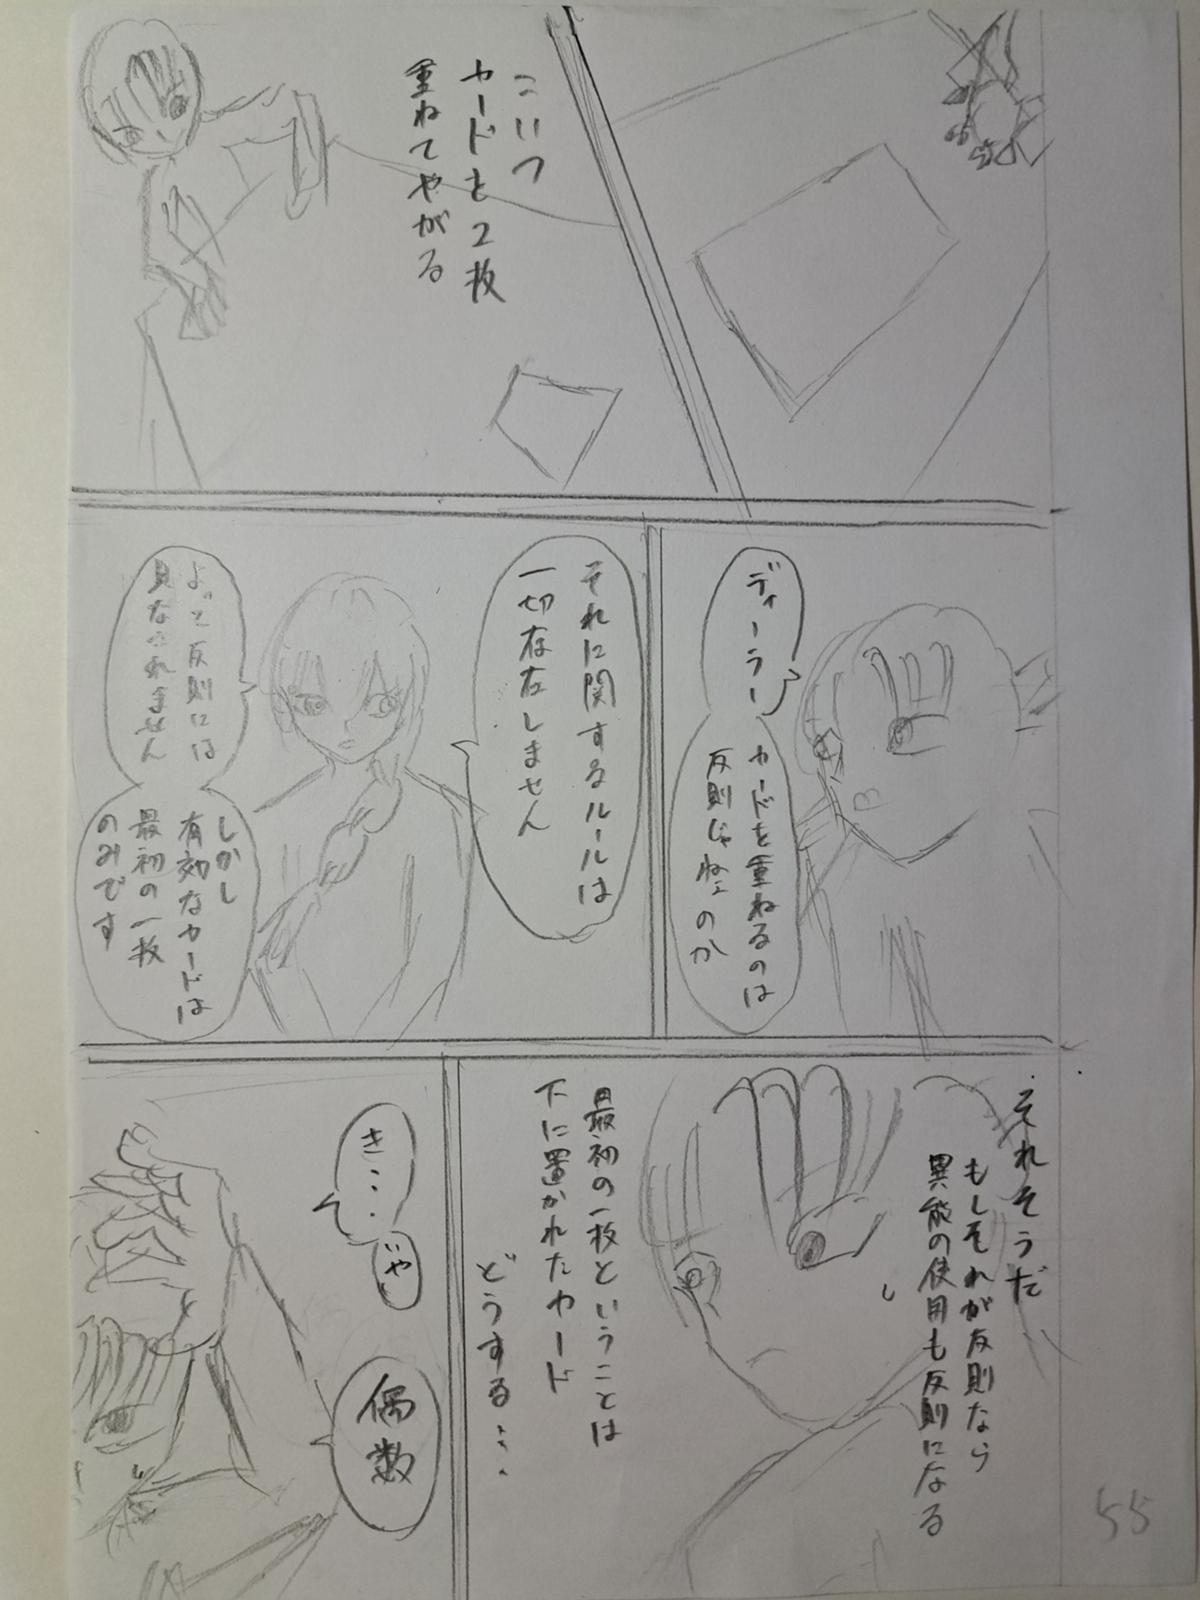 こいつ
カードを2枚
重ねてやがる
ディーラー
カードを重ねるのは
反則じゃねぇのか
それに関するルールは
一切存在しません
よって反則には
見なされません
しかし
有効なカードは
最初の一枚
のみです
それそうだ
もしそれが反則なら
異能の使用も反則になる
最初の一枚ということは
下に置かれたカード
どうする・・・
き・・・
いや
偶数
55